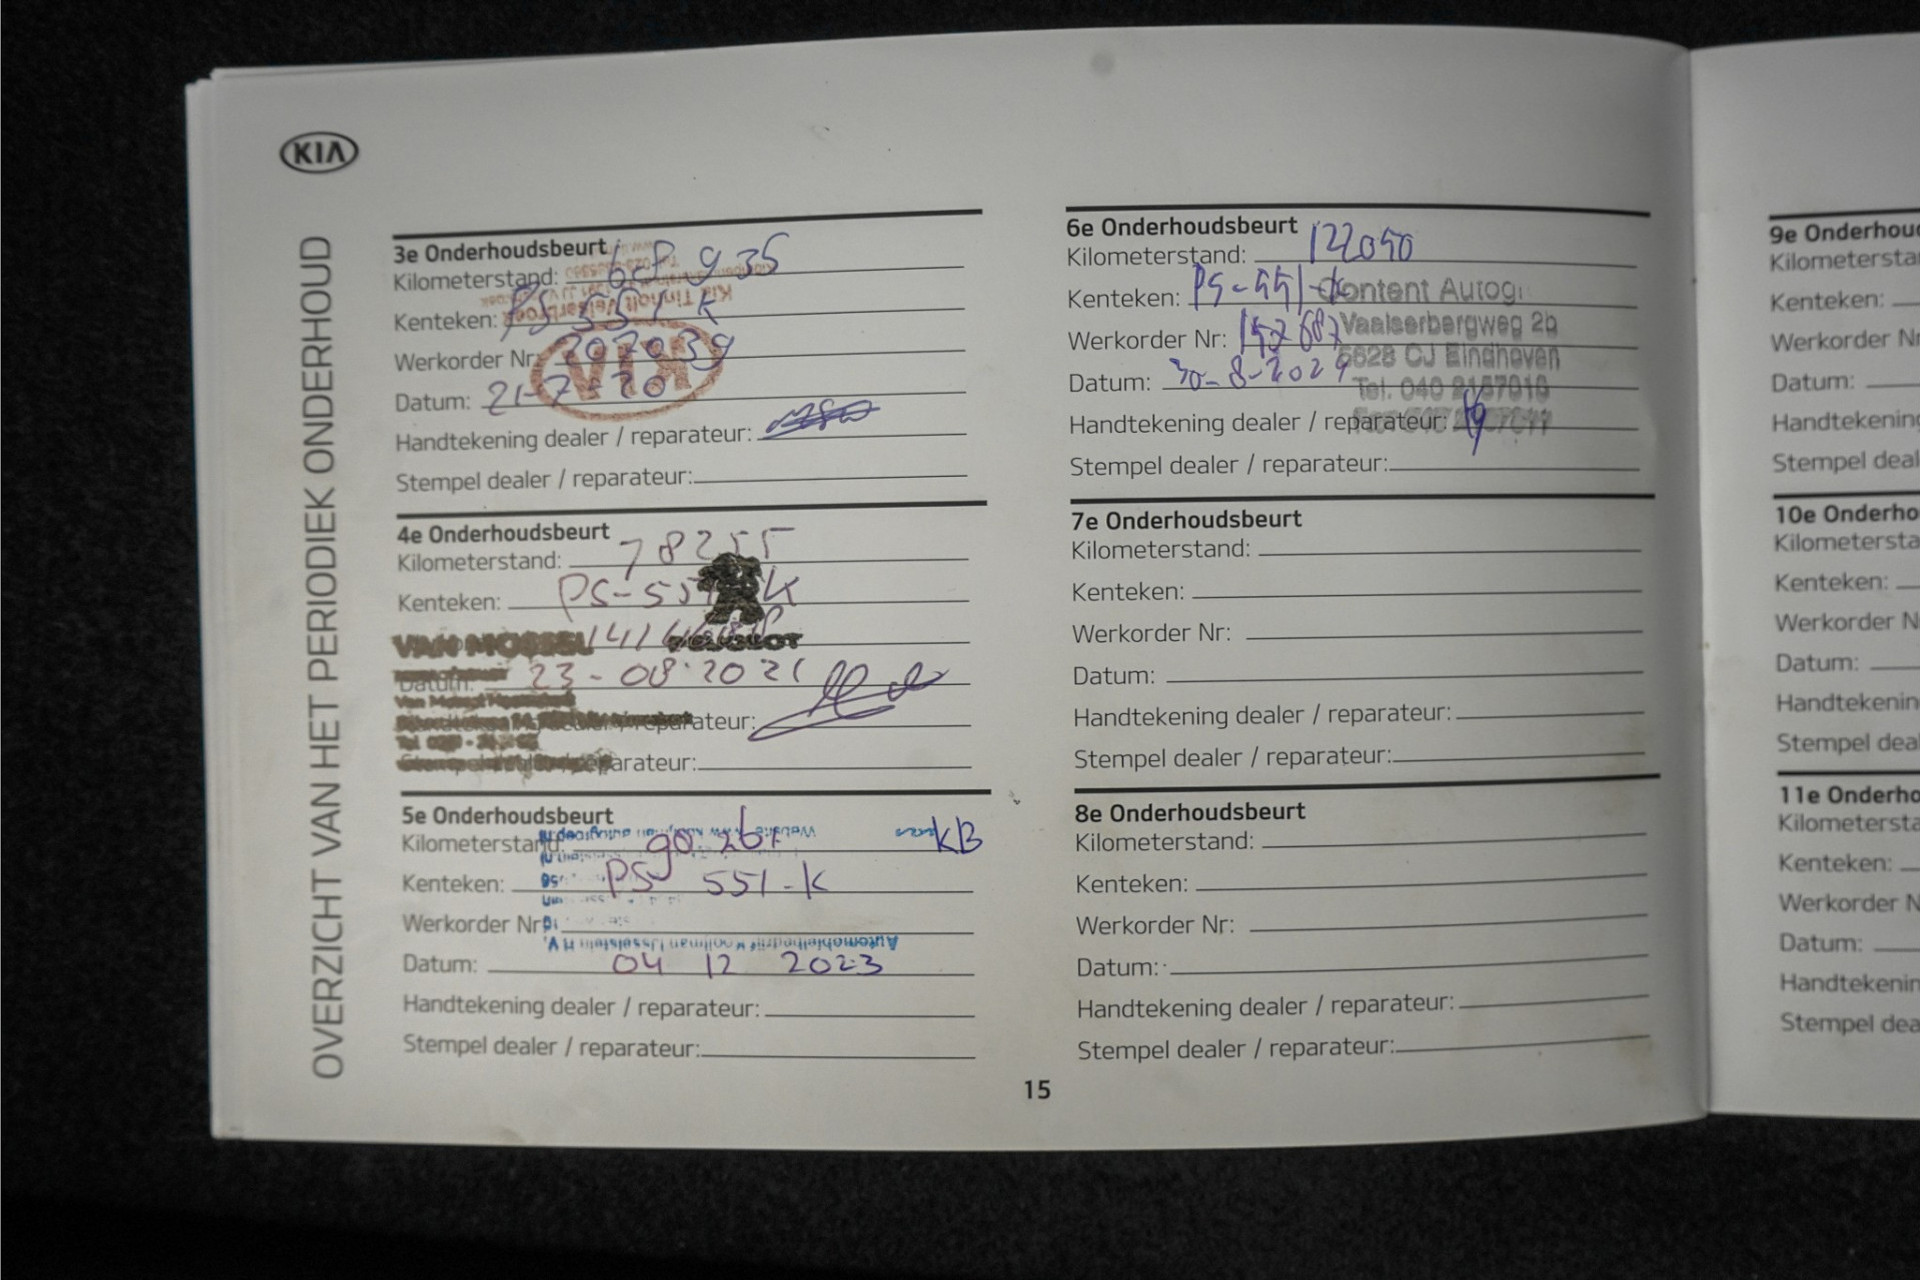 KIA
OVERZICHT VAN HET PERIODIEK ONDERHOUD
3e Onderhoudsbeurt
Kilometerstand: 935
Kenteken: PS 551 K
Kia Tinholt Velserbroek
Werkorder Nr: 207039
KIA
Datum: 21-7-20
Handtekening dealer / reparateur:
Stempel dealer / reparateur:
4e Onderhoudsbeurt
Kilometerstand: 78255
Kenteken: PS-551-K
VAN MOSSEL PEUGEOT
Datum: 23-08-2021
reparateur:
reparateur:
5e Onderhoudsbeurt
Kilometerstand: KB
Kenteken: PS 551-K
Werkorder Nr:
Automobielbedrijf Kooijman IJsselstein
Datum: 04 12 2023
Handtekening dealer / reparateur:
Stempel dealer / reparateur:
6e Onderhoudsbeurt
Kilometerstand: 122050
Kenteken: PS-551-K
Content
Werkorder Nr: 152687
Vaalserbergweg 2b
5628 CJ Eindhoven
Datum: 30-8-2024
Tel. 040
Handtekening dealer / reparateur:
Stempel dealer / reparateur:
7e Onderhoudsbeurt
Kilometerstand:
Kenteken:
Werkorder Nr:
Datum:
Handtekening dealer / reparateur:
Stempel dealer / reparateur:
8e Onderhoudsbeurt
Kilometerstand:
Kenteken:
Werkorder Nr:
Datum:
Handtekening dealer / reparateur:
Stempel dealer / reparateur:
15
9e Onderhou
Kilometersta
Kenteken:
Werkorder N
Datum:
Handtekening
Stempel deal
10e Onderho
Kilometersta
Kenteken:
Werkorder N
Datum:
Handtekenin
Stempel dea
11e Onderho
Kilometersta
Kenteken:
Werkorder N
Datum:
Handtekenin
Stempel dea